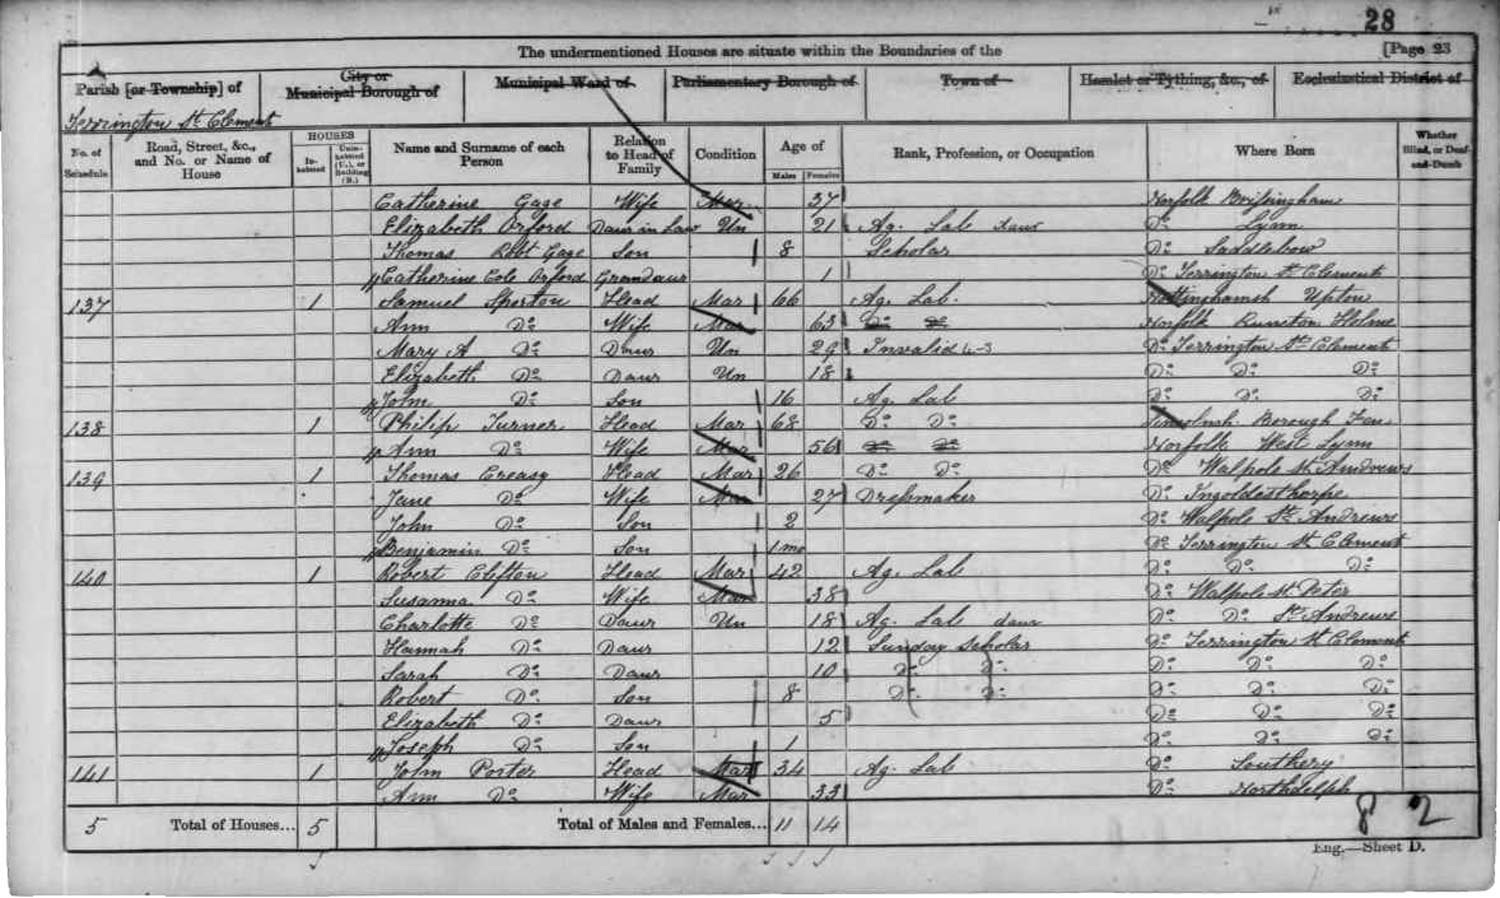 28
The undermentioned Houses are situate within the Boundaries of the [Page 23
Parish [or Township] of City or Municipal Borough of Municipal Ward of Parliamentary Borough of Town of Hamlet or Tything, &c., of Ecclesiastical District of
Terrington St Clement
No. of Schedule Road, Street, &c., and No. or Name of House HOUSES Inhabited Uninhabited (U.), or Building (B.) Name and Surname of each Person Relation to Head of Family Condition Age of Males Females Rank, Profession, or Occupation Where Born Whether Blind, or Deaf-and-Dumb
Catherine Gage Wife Mar 37 Norfolk Brissingham
Elizabeth Orford Daur in Law Un 21 Ag. Lab daur Do Lynn
Thomas Robt Gage Son 8 Scholar Do Saddlebow
Catherine Cole Orford Grandaur 1 Do Terrington St Clements
137 1 Samuel Shorton Head Mar 66 Ag. Lab. Nottinghamsh Upton
Ann Do Wife Mar 63 Do Do Norfolk Runcton Holme
Mary A Do Daur Un 29 Invalid Do Terrington St Clement
Elizabeth Do Daur Un 18 Do Do Do
John Do Son 16 Ag. Lab Do Do Do
138 1 Philip Turner Head Mar 68 Do Do Lincolnsh. Borough Fen
Ann Do Wife Mar 56 Do Do Norfolk West Lynn
139 1 Thomas Creasy Head Mar 26 Do Do Do Walpole St Andrews
Jane Do Wife Mar 27 Dressmaker Do Ingoldesthorpe
John Do Son 2 Do Walpole St Andrews
Benjamin Do Son 1 mo Do Terrington St Clement
140 1 Robert Clifton Head Mar 42 Ag. Lab Do Do Do
Susanna Do Wife Mar 38 Do Walpole St Peter
Charlotte Do Daur Un 18 Ag. Lab daur Do Do St Andrews
Hannah Do Daur 12 Sunday Scholar Do Terrington St Clement
Sarah Do Daur 10 Do Do Do Do Do
Robert Do Son 8 Do Do Do Do Do
Elizabeth Do Daur 5 Do Do Do
Joseph Do Son 1 Do Do Do
141 1 John Porter Head Mar 34 Ag. Lab Do Southery
Ann Do Wife Mar 33 Do Northdelph
5 Total of Houses... 5 Total of Males and Females... 11 14 8 2
Eng.—Sheet D.